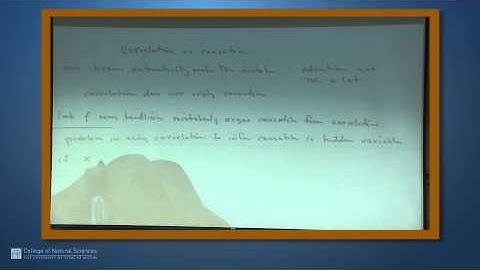 Correlation vs causation
our brain automatically makes this mistake. Advertisers use this a lot
correlation does not imply causation
lots of news headlines mistakenly argue causation from correlation
problem in using correlation to infer causation is hidden variables
if X
College of Natural Sciences
THE UNIVERSITY OF TEXAS AT AUSTIN